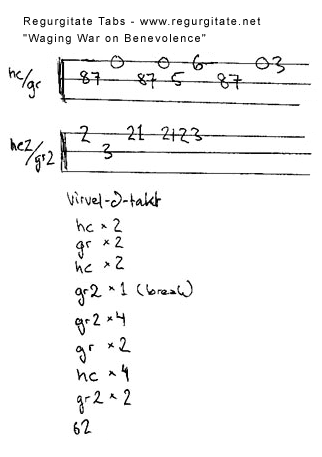 Regurgitate Tabs - www.regurgitate.net
"Waging War on Benevolence"
hc/gr
0 0 6 0 3
87 87 5 87
hc2/gr2
2 21 2123
3
virvel-2-takt
hc × 2
gr × 2
hc × 2
gr2 × 1 (break)
gr2 × 4
gr × 2
hc × 4
gr2 × 2
62